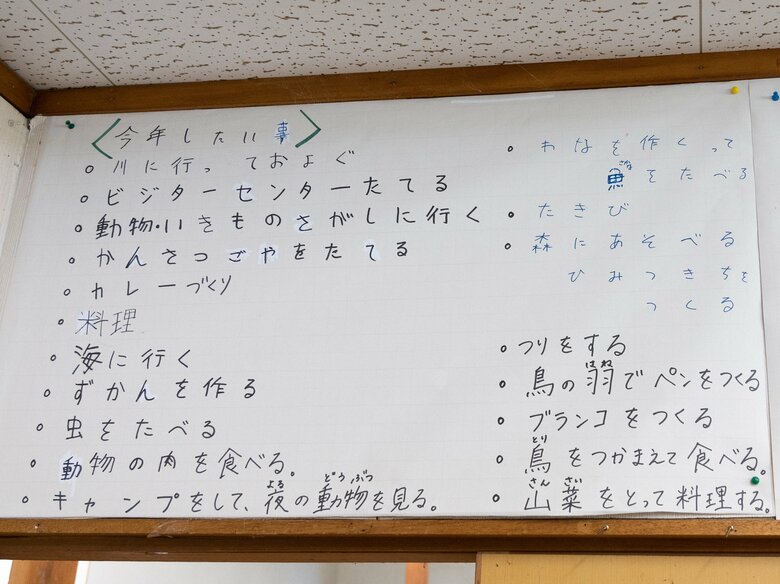 〈今年したい事〉
・川に行っておよぐ
・ビジターセンターたてる
・動物・いきものさがしに行く
・かんさつごやをたてる
・カレーづくり
・料理
・海に行く
・ずかんを作る
・虫をたべる
・動物の肉を食べる。
・キャンプをして、夜の動物を見る。
よる
どうぶつ
・わなを作くって
魚をたべる
さかな
・たきび
・森にあそべる
ひみつきちを
つくる
・つりをする
・鳥の羽でペンをつくる
はね
・ブランコをつくる
・鳥をつかまえて食べる。
とり
・山菜をとって料理する。
さんさい